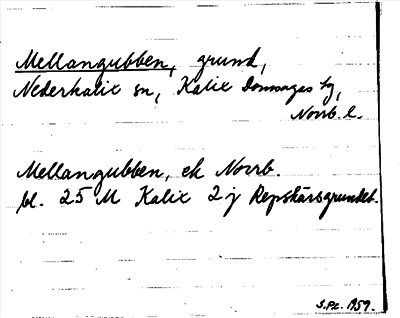 Mellangubben, grund,
Nederkalix sn, Kalix Domsagas tg,
Norrb. l.
Mellangubben, ek Norrb.
bl. 25 M Kalix 2 j Repskärsgrundet.
S.Pl. 1959.